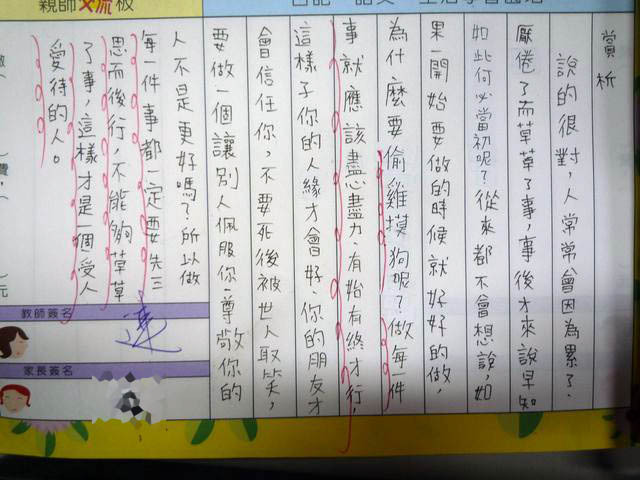 親師交流板
賞析
說的很對，人常常會因為累了、
厭倦了而草草了事，事後才來說早知
如此何必當初呢？從來都不會想說，如
果一開始要做的時候就好好的做，
為什麼要偷雞摸狗呢？做每一件
事就應該盡心盡力、有始有終才行，
這樣子你的人緣才會好、你的朋友才
會信任你，不要死後被世人取笑，
要做一個讓別人佩服你、尊敬你的
人不是更好嗎？所以做
每一件事都一定要先三
思而後行，不能夠草草
了事，這樣才是一個受人
愛待的人。
教師簽名
家長簽名
元